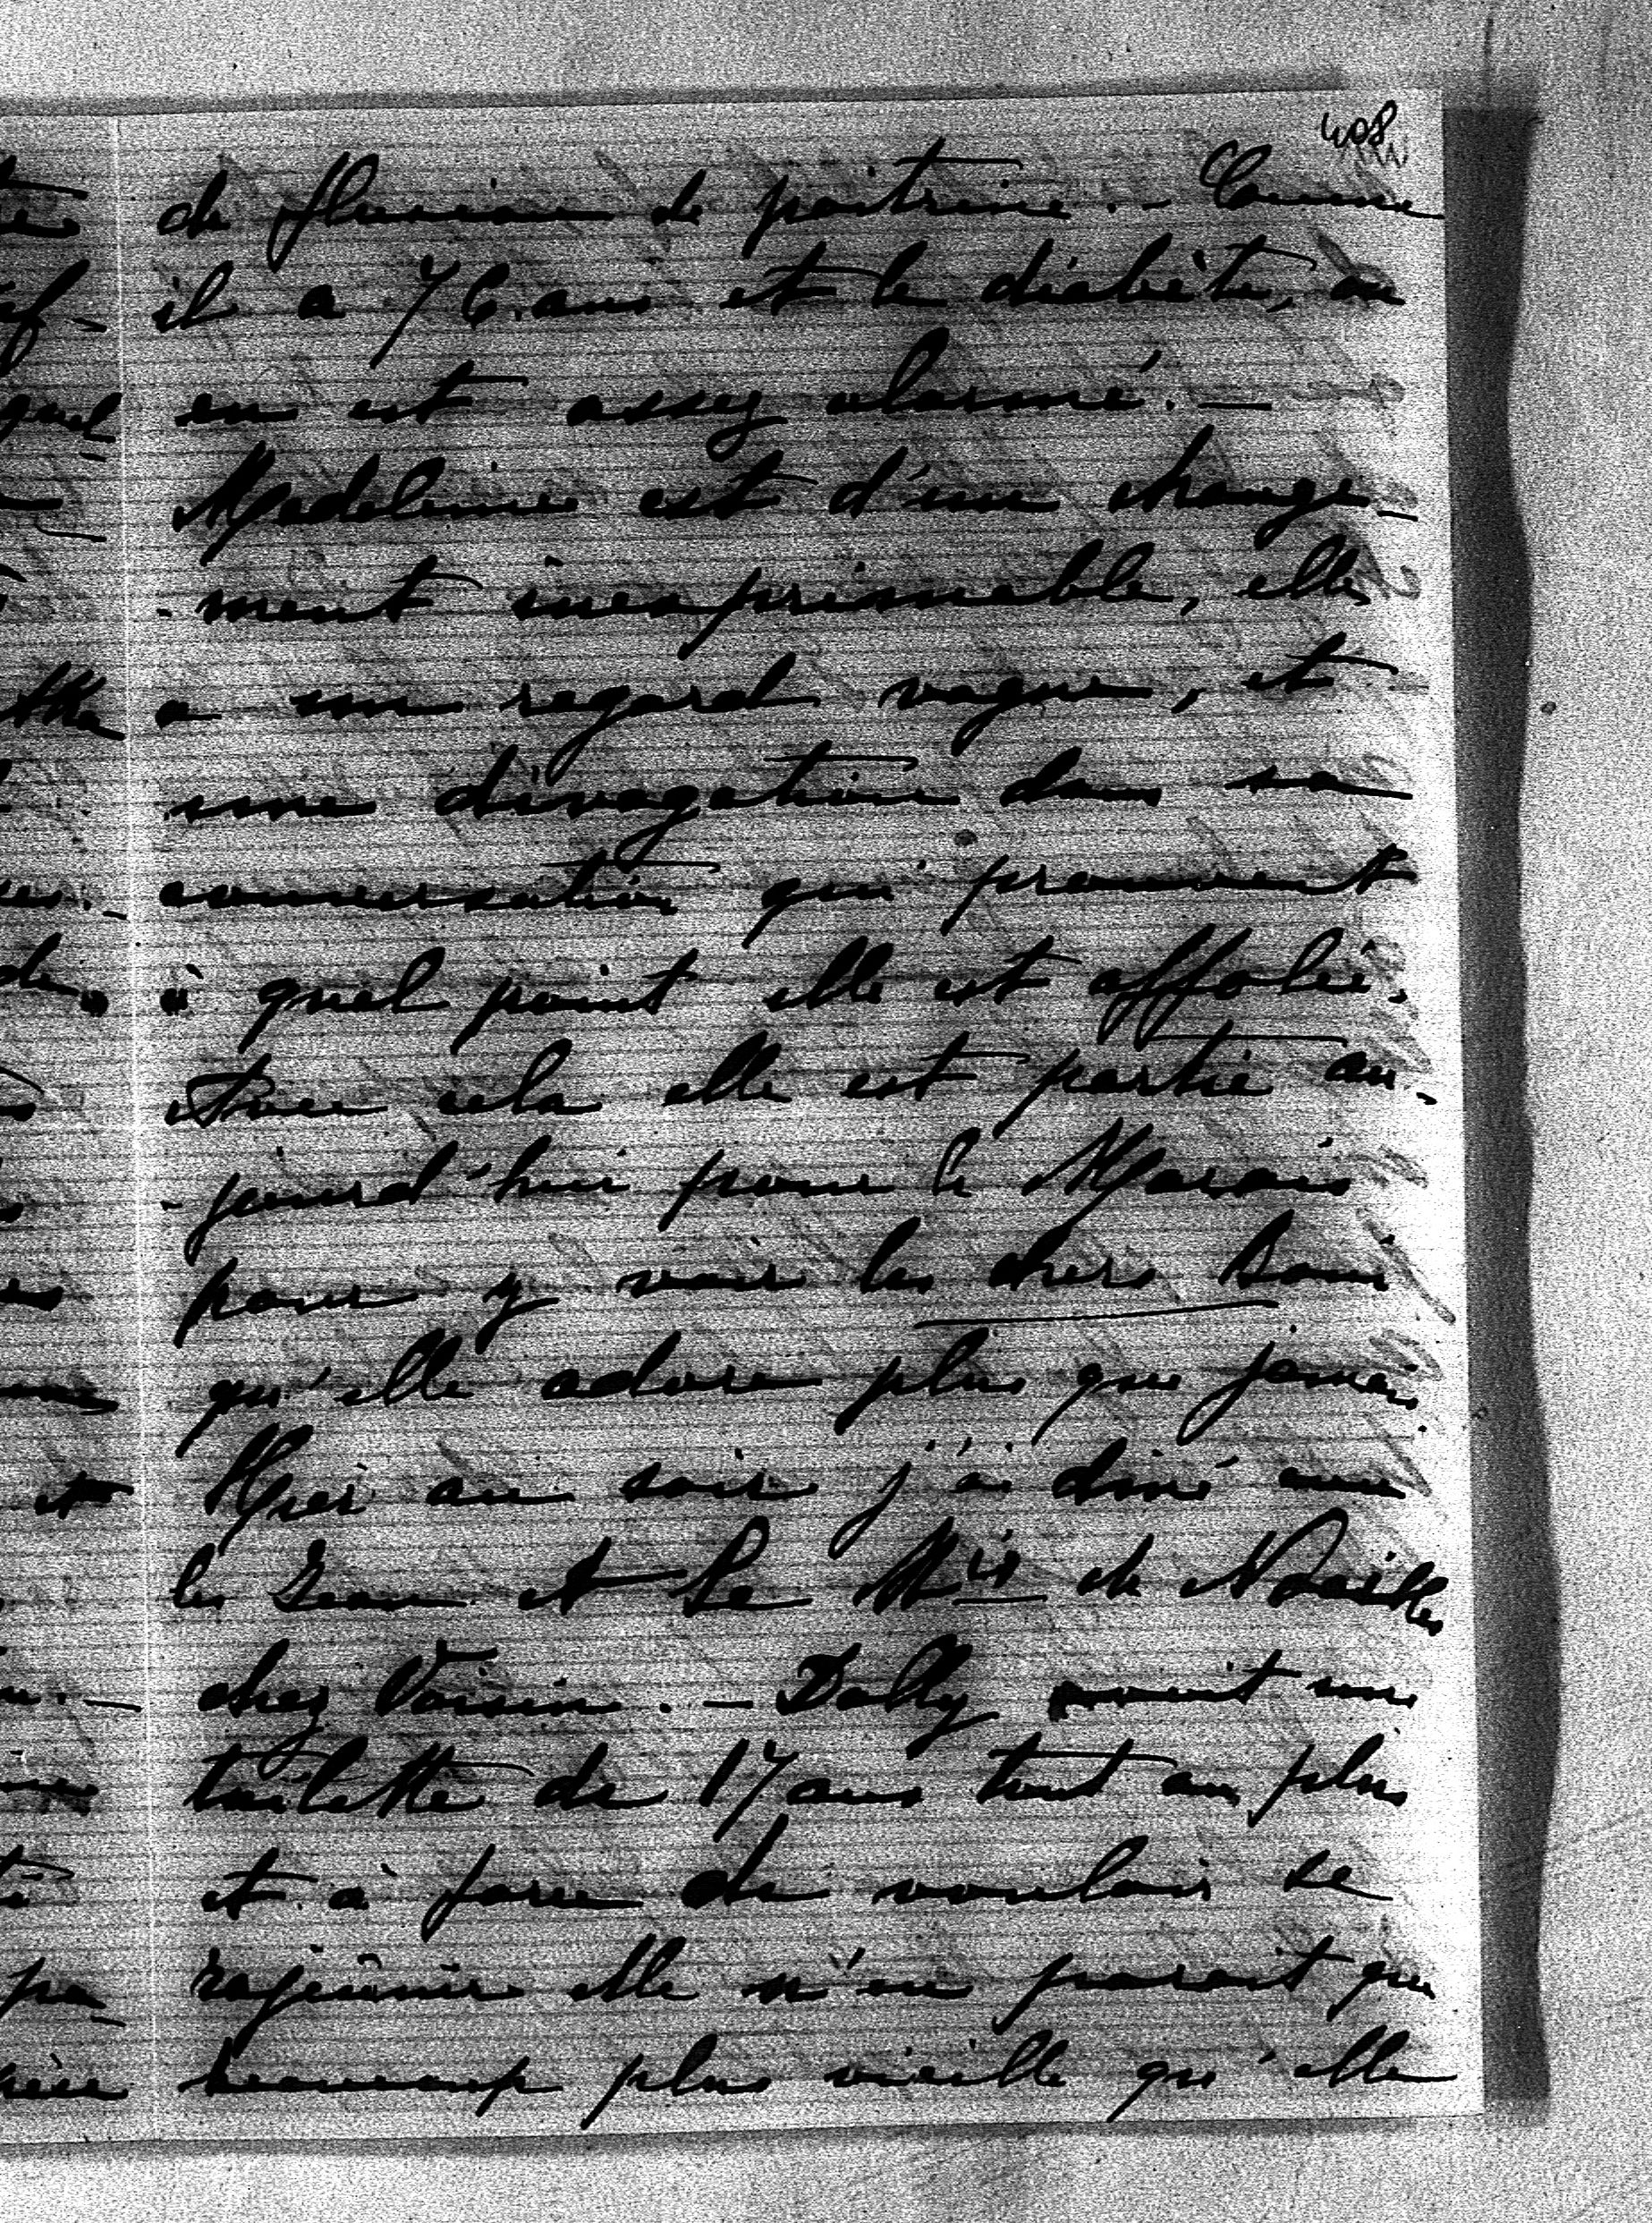 408
de fluxion de poitrine. - Comme
il a 76. ans et le diabète, on
en est assez alarmé. -
Madeleine est d'un change-
-ment inexprimable, elle
a un regard vague, et
une divagation dans sa
conversation qui prouvent
à quel point elle est affolée.
Avec cela elle est partie au-
-jourd'hui pour le Marais
pour y voir les chers Boni
qu'elle adore plus que jamais.
Hier au soir j'ai diné avec
les Jean et le Mis de Noailles
chez Voisin. - Dolly avait une
toilette de 17 ans tout au plus
et à force de vouloir se
rajeunir elle n'en parait que
beaucoup plus vieille qu'elle